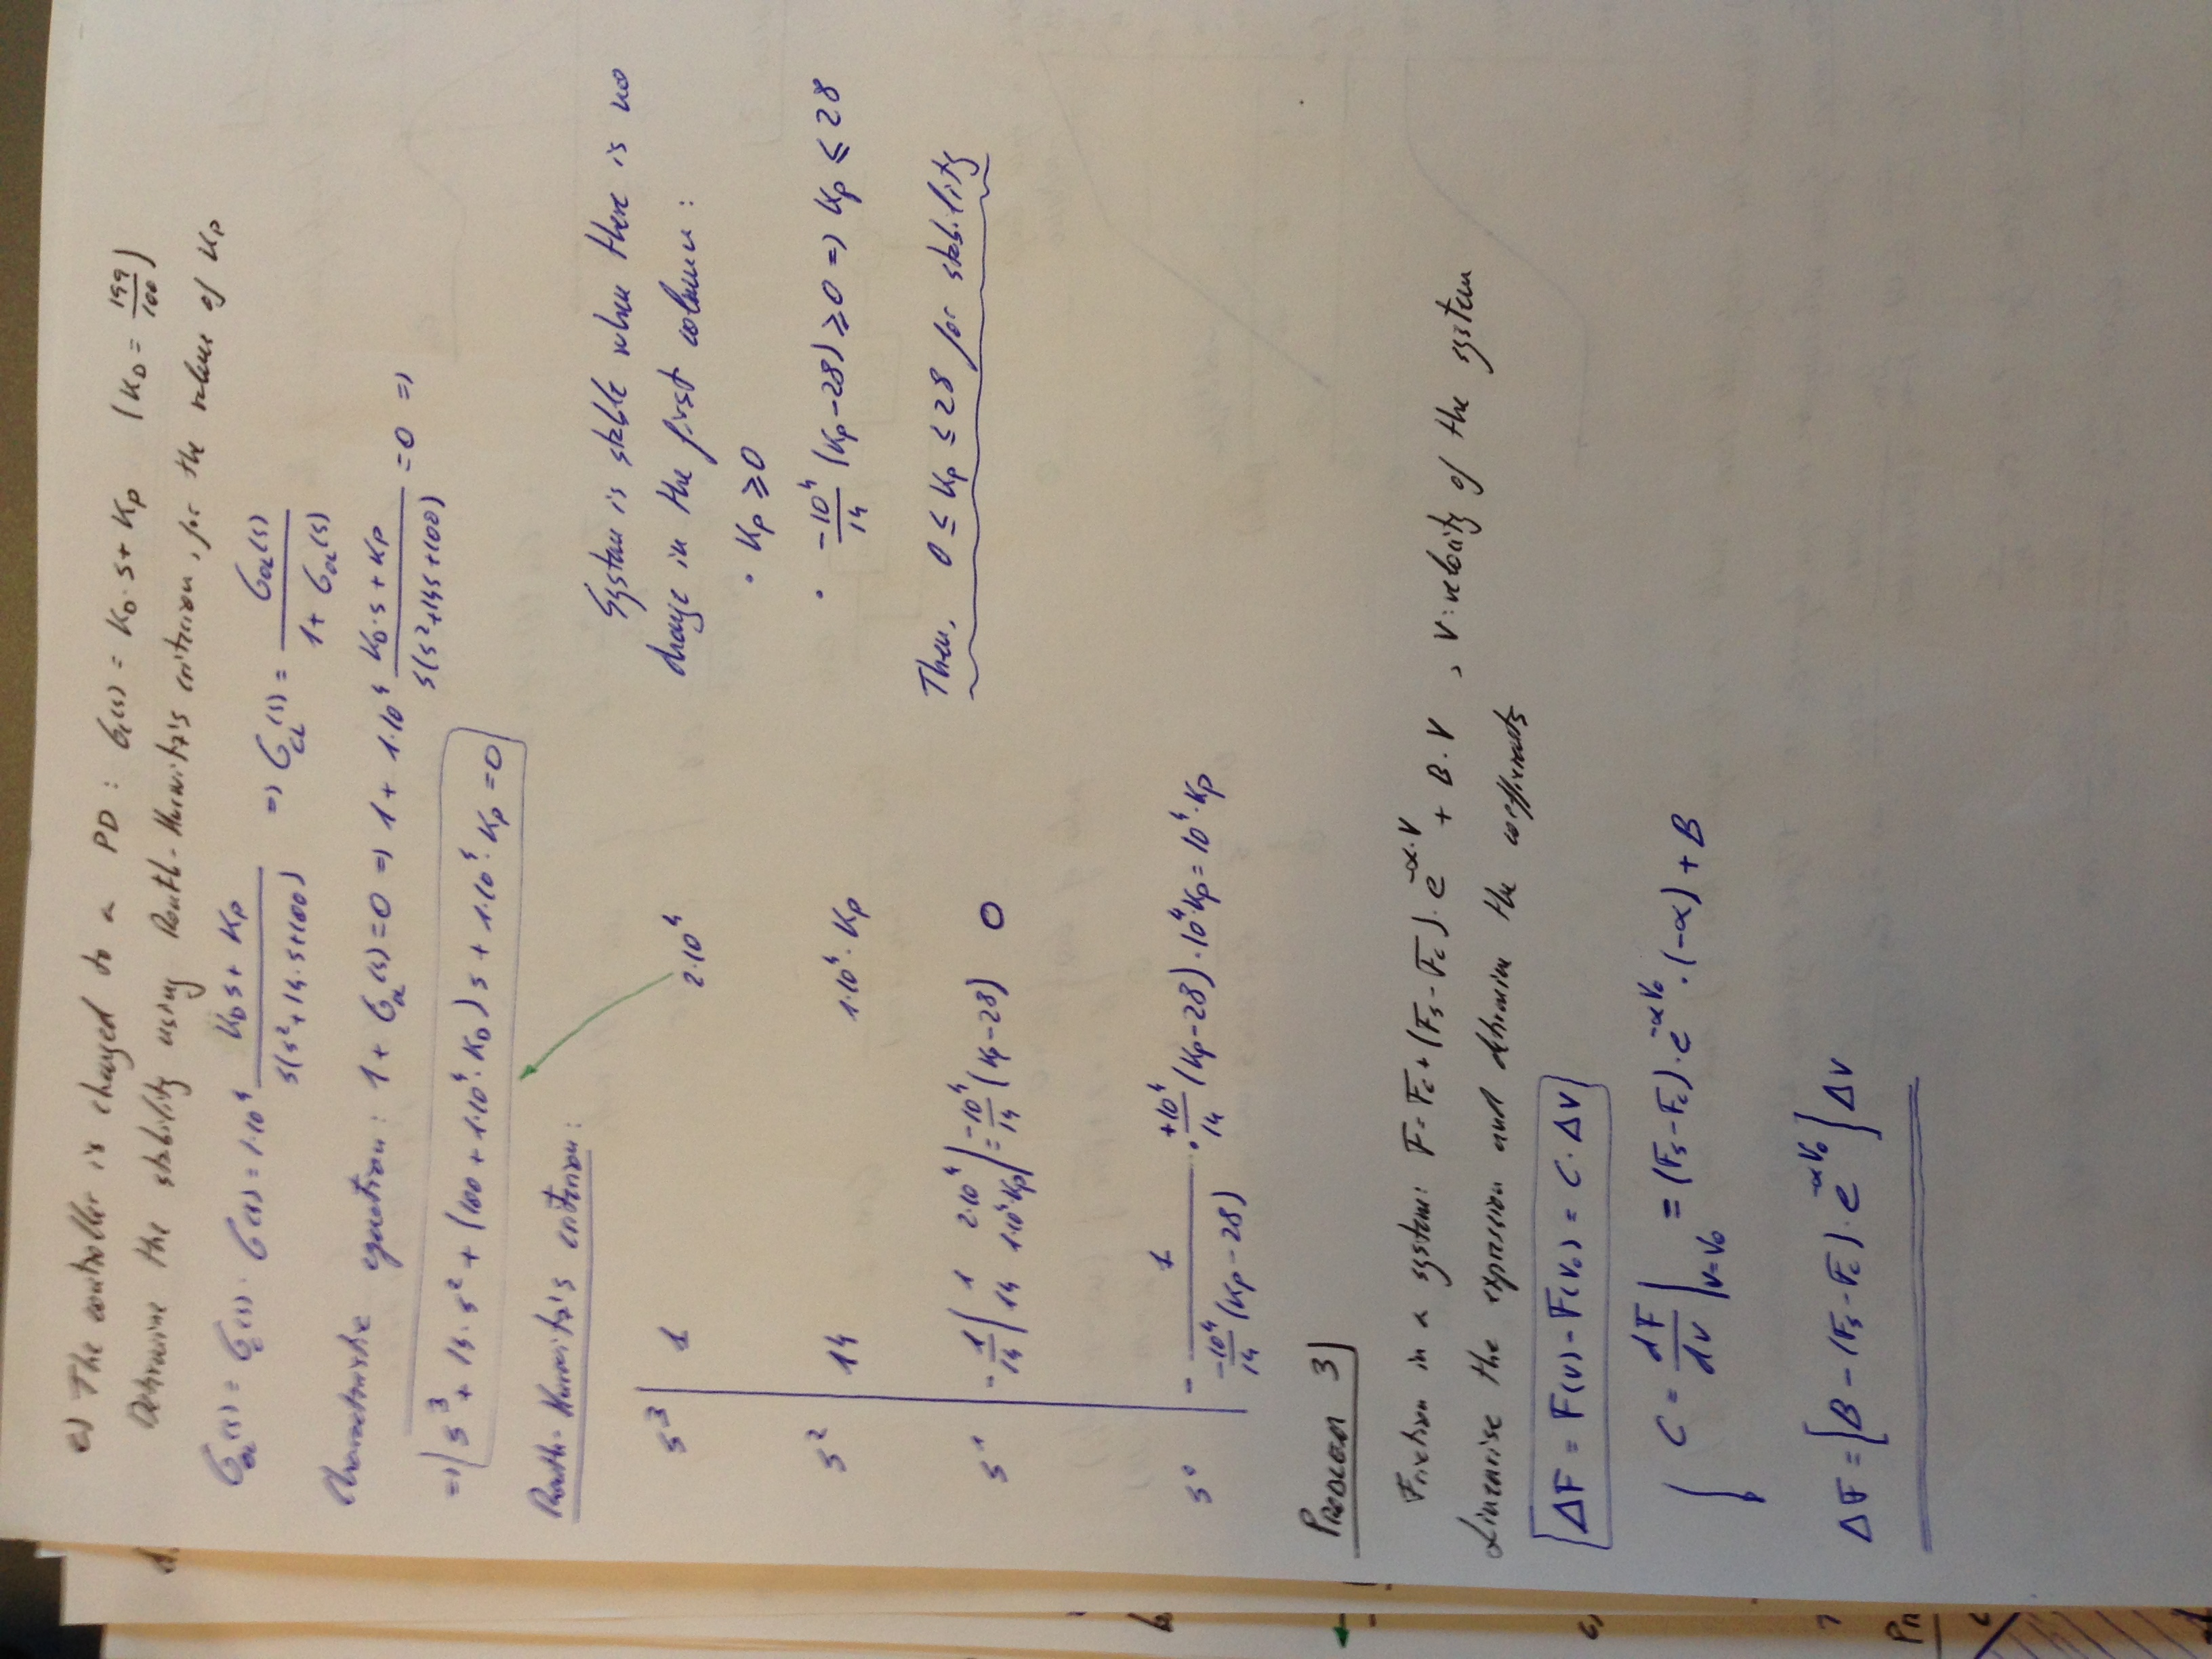 e) The controller is changed to a PD : Gc(s) = KD·s + Kp (KD = 199/100)
Determine the stability using Routh-Hurwitz's criterion, for the values of Kp
Gol(s) = Gc(s) · G(s) = 1·10⁴ (KD s + Kp)/(s(s²+14·s+100)) => Gcl(s) = Gol(s)/(1 + Gol(s))
Characteristic equation: 1 + Gol(s) = 0 => 1 + 1·10⁴ (KD·s + Kp)/(s(s²+14s+100)) = 0 =>
=> s³ + 14·s² + (100 + 1·10⁴·KD)s + 1·10⁴·Kp = 0
Routh-Hurwitz's criterion:
s³ | 1 2·10⁴
s² | 14 1·10⁴·Kp
s¹ | -1/14 |1 2·10⁴; 14 1·10⁴·Kp| = -10⁴/14 (Kp-28) 0
s⁰ | - 1/(-10⁴/14 (Kp-28)) · +10⁴/14 (Kp-28)·10⁴·Kp = 10⁴·Kp
System is stable when there is no
change in the first column :
· Kp ≥ 0
· -10⁴/14 (Kp-28) ≥ 0 => Kp ≤ 28
Then, 0 ≤ Kp ≤ 28 for stability
PROBLEM 3)
Friction in a system: F = Fc + (Fs - Fc)·e^(-α·V) + B·V , V: velocity of the system
Linearise the expression and determine the coefficients
ΔF = F(V) - F(V₀) = C·ΔV
C = dF/dV |V=V₀ = (Fs - Fc)·e^(-αV₀)·(-α) + B
ΔF = [B - (Fs - Fc)·e^(-αV₀)] ΔV